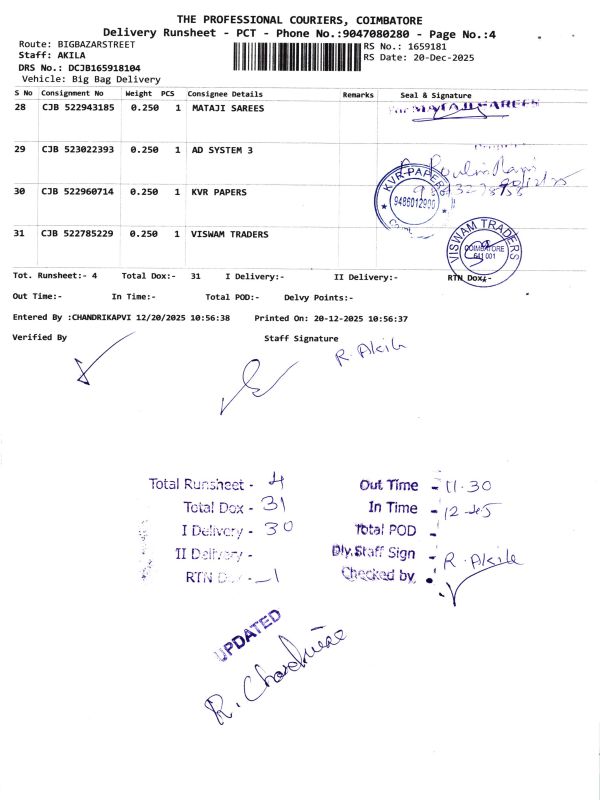 THE PROFESSIONAL COURIERS, COIMBATORE
Delivery Runsheet - PCT - Phone No.:9047080280 - Page No.:4
Route: BIGBAZARSTREET RS No.: 1659181
Staff: AKILA RS Date: 20-Dec-2025
DRS No.: DCJB165918104
Vehicle: Big Bag Delivery
S No Consignment No Weight PCS Consignee Details Remarks Seal & Signature
28 CJB 522943185 0.250 1 MATAJI SAREES For MATAJI SAREES
29 CJB 523022393 0.250 1 AD SYSTEM 3
30 CJB 522960714 0.250 1 KVR PAPERS
KVR PAPERS
9486012900
31 CJB 522785229 0.250 1 VISWAM TRADERS
VISWAM TRADERS
COIMBATORE
641 001
Tot. Runsheet:- 4 Total Dox:- 31 I Delivery:- II Delivery:- RTN Dox:-
Out Time:- In Time:- Total POD:- Delvy Points:-
Entered By :CHANDRIKAPVI 12/20/2025 10:56:38 Printed On: 20-12-2025 10:56:37
Verified By Staff Signature
R. Akila
Total Runsheet - 4 Out Time - 11.30
Total Dox - 31 In Time - 12.45
I Delivery - 30 Total POD -
II Delivery - Dly.Staff Sign - R. Akila
RTN Dox - 1 Checked by
UPDATED